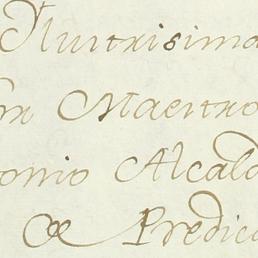 Illustrisima
or Maestro
onio Alcald
de Predica